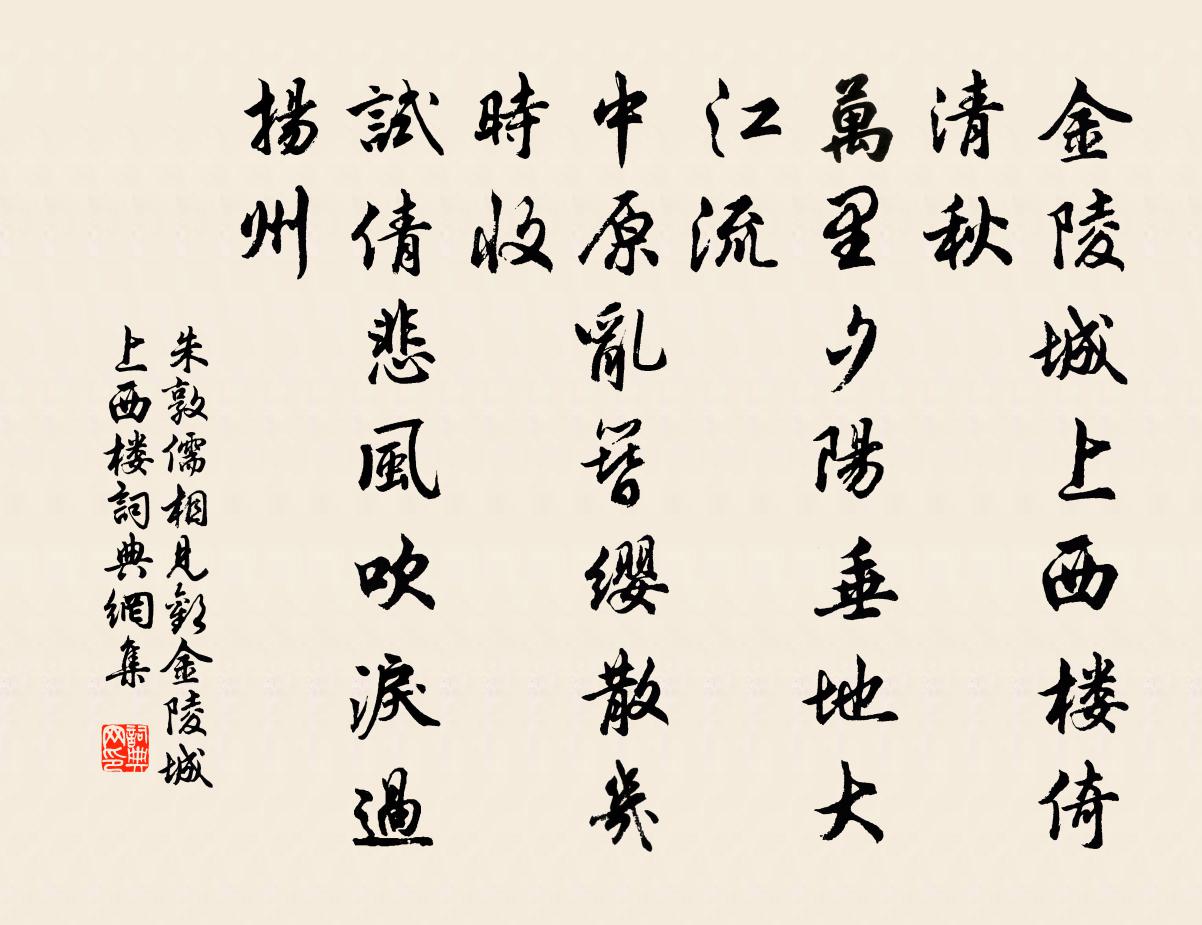 金陵城上西楼倚
清秋
萬里夕陽垂地大
江流
中原亂簪缨散幾
時收
試倩悲風吹淚過
揚州
朱敦儒相見歡金陵城
上西楼詞典網集
詞典网印